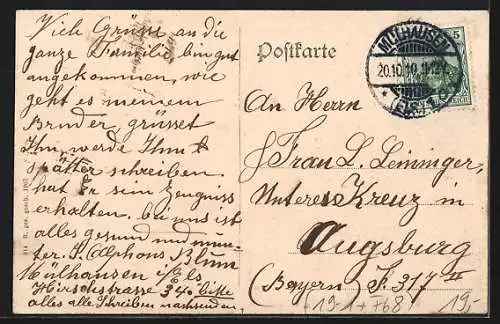 Viele Grüße an die
ganze Familie bin gut
angekommen, wie
geht es meinem
Bruder grüsset
Ihn, werde Ihm
spätter schreiben.
hat er sein Zeugniss
erhalten. bei uns ist
alles gesund und mun-
ter. Alphons Blum
Mülhausen i/Els
Hirschstrasse 34. bitte
alles alle Schreiben nachsenden,
Postkarte
MÜLHAUSEN
20.10.10.
(ELS.)
5
REICH
An Herrn
Frau L. Leininger,
Unteres Kreuz in
Augsburg
(Bayern) F. 317 II
19-1+F68
19,-